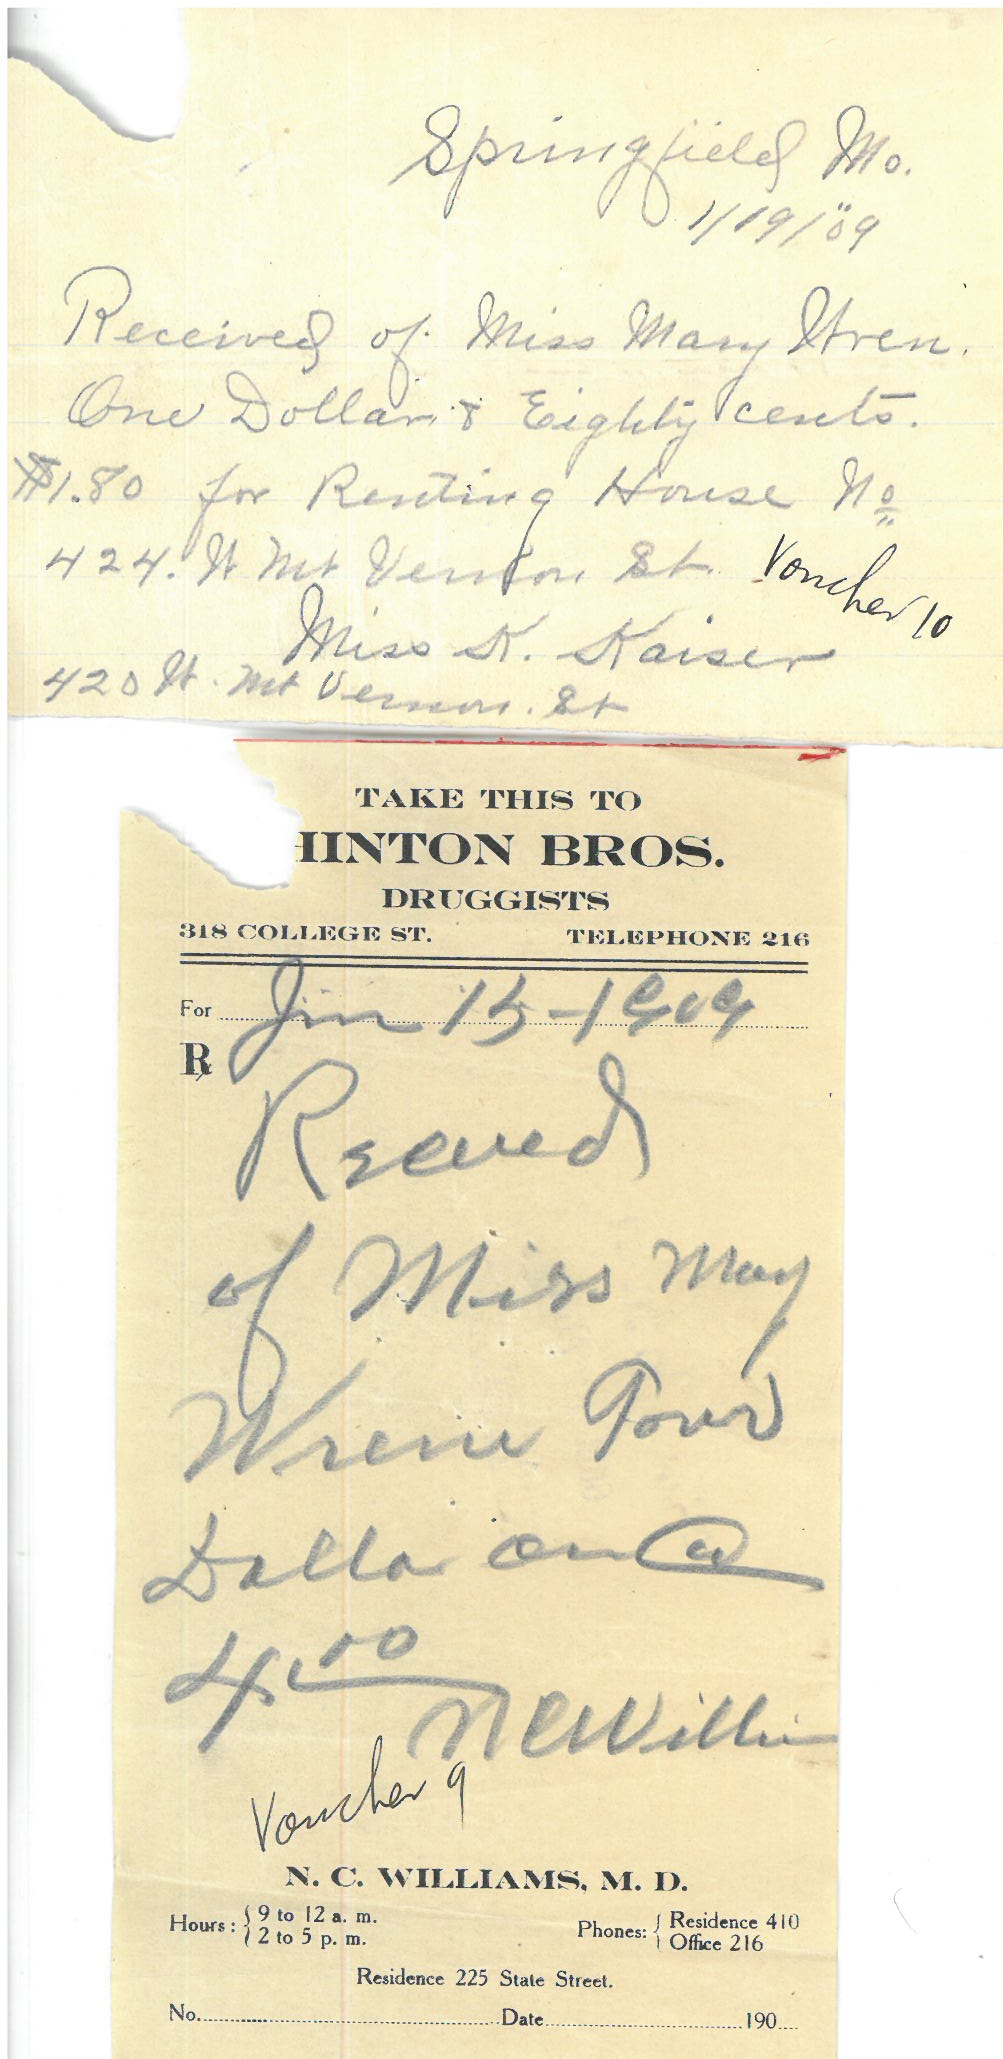 Springfield Mo.
1/19/"09
Received of Miss Mary Wren.
One Dollar & Eighty cents.
$1.80 for Renting House No
424. W Mt Vernon St. Voucher 10
Miss K. Kaiser
420 W. Mt Vernon. St
TAKE THIS TO
HINTON BROS.
DRUGGISTS
318 COLLEGE ST. TELEPHONE 216
For Jan 15-1909
Rx
Recived
of Miss May
Wrenn Four
Dollar on
4.00
N C Willi
Voucher 9
N. C. WILLIAMS, M. D.
Hours: { 9 to 12 a. m. Phones: { Residence 410
{ 2 to 5 p. m. { Office 216
Residence 225 State Street.
No. Date 190